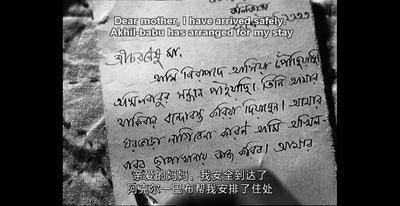 কলিকাতা
Dear mother, I have arrived safely.
Akhil-babu has arranged for my stay
শ্রীচরণেষু মা,
আমি নিরাপদে আসিয়া পৌঁছিয়াছি।
অখিলবাবুর সন্ধান পাইয়াছি। তিনি আমার
থাকিবার বন্দোবস্ত করিয়া দিয়াছেন। আমার
ঘরভাড়া লাগিবেনা কারণ আমি অখিল-
বাবুর ছাপাখানায় কাজ করিব। আমার
亲爱的妈妈，我安全到达了
阿克尔－巴布帮我安排了住处